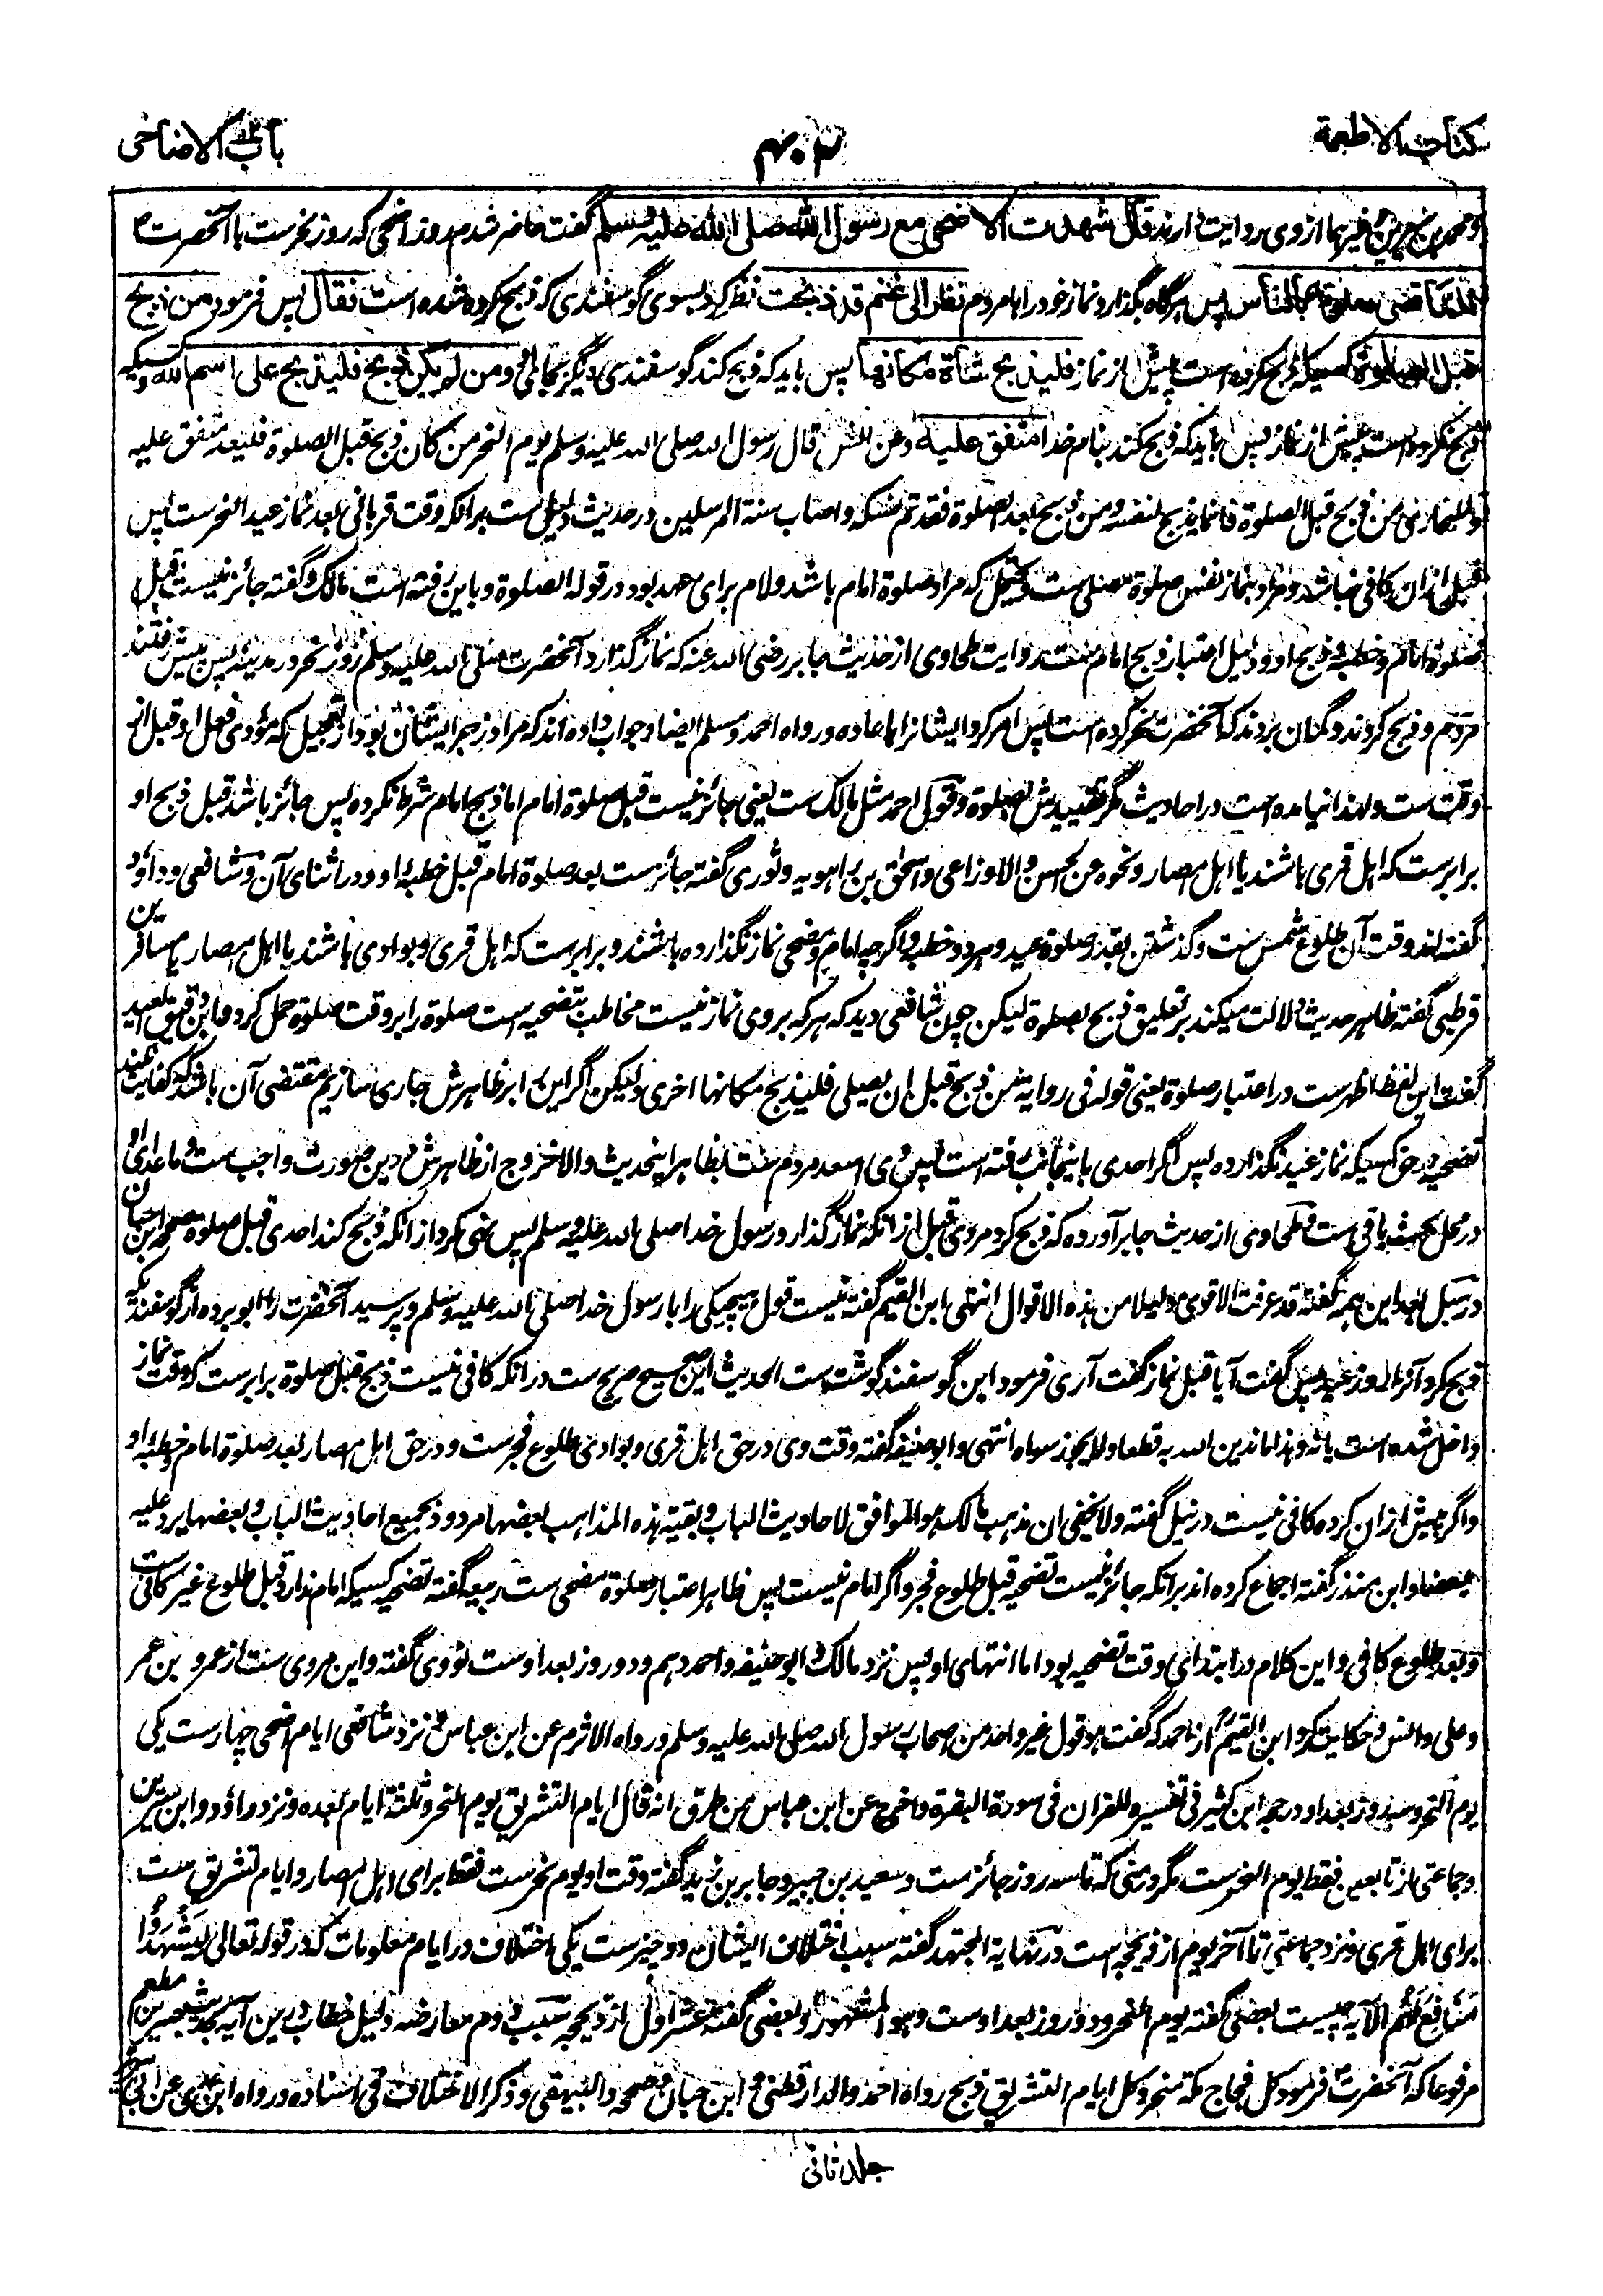 کتاب الاطعمة
۴۰۲
باب الاضاحی
ومحمد بن سیرین وغیرهما ازوی روایت دارند قال شهدت الاضحی مع رسول الله صلی الله علیه وسلم گفت حاضر شدم روز اضحی که روز نحرست با آنحضرت
فلما قضی صلوته بالناس پس هرگاه بگذارد نماز خود را بامردم نظر الی غنم قد ذبحت نظر کرد بسوی گوسفندی که ذبح کرده شده است فقال پس فرمود من ذبح
قبل الصلوة کسیکه ذبح کرده است پیش از نماز فلیذبح شاة مکانها پس باید که ذبح کند گوسفندی دیگر بجای او ومن لم یکن ذبح فلیذبح علی اسم الله وکسیکه
ذبح نکرده است پیش از نماز پس باید که ذبح کند بنام خدا متفق علیه وعن انس قال رسول الله صلی الله علیه وسلم یوم النحر من کان ذبح قبل الصلوة فلیعد متفق علیه
وللبخاری من ذبح قبل الصلوة فانما یذبح لنفسه ومن ذبح بعد الصلوة فقد تم نسکه واصاب سنة المرسلین در حدیث دلیل ست برانکه وقت قربانی بعد نماز عید النحرست پس
قبل ازان کافی نباشد ومراد بنماز نفس صلوة مصلی ست ویحتمل که مراد صلوة امام باشد ولام برای عهد بود در قوله الصلوة وباین رفته است مالک وگفته جائز نیست قبل
صلوة امام وخطبه وذبح او ودلیل اعتبار ذبح امام روایت طحاوی از حدیث جابر رضی الله عنه که نماز گذارد آنحضرت صلی الله علیه وسلم روز نحر در مدینه پس پیش رفتند
مردم وذبح کردند وگمان بردند که آنحضرت نحر کرده است پس امر کرد ایشانرا باعاده ورواه احمد ومسلم ایضا وجواب داده اند که مراد زجر ایشان بود از تعجیل که مؤدی فعل او قبل از
وقت ست ولهذا نیامده است در احادیث مگر تقییدش بصلوة وقول احمد مثل مالک ست یعنی جائز نیست قبل صلوة امام اما ذبح امام شرط نکرده پس جائز باشد قبل ذبح او
برابرست که اهل قری باشند یا اهل امصار ونحوه عن الحسن والاوزاعی واسحٰق بن راهویه وثوری گفته جائزست بعد صلوة امام قبل خطبه او ودر اثنای آن وشافعی وداؤد
گفته اند وقت آن طلوع شمس ست وگذشتن بقدر صلوة عید وهر دو خطبه واگرچه امام ومضحی نماز نگذارده باشند وبرابرست که اهل قری وبوادی باشند یا اهل امصار یا مسافرین
قرطبی گفته ظاهر حدیث دلالت میکند بر تعلیق ذبح بصلوة لیکن چون شافعی دید که هر که بر وی نماز نیست مخاطب بتضحیه است صلوة را بر وقت صلوة حمل کرد وابن دقیق العید
گفت این لفظ اظهرست در اعتبار صلوة یعنی قوله فی روایة من ذبح قبل ان یصلی فلیذبح مکانها اخری ولیکن اگر این را بر ظاهرش جاری سازیم مقتضی آن باشد که کفایت نکند
تضحیه در حق کسیکه نماز عید نگذارده پس اگر احدی باینجانب رفته است پس وی اسعد مردم ست بظاهر اینحدیث والا خروج از ظاهرش درین صورت واجب ست وماعدای او
در محل بحث باقی ست وطحاوی از حدیث جابر آورده که ذبح کرد مردی قبل ازانکه نماز گذارد رسول خدا صلی الله علیه وسلم پس نهی کرد ازانکه ذبح کند احدی قبل صلوة صححه ابن حبان
در سبل بعد این همه گفته قد عرفت الاقوی دلیلا من هذه الاقوال انتهی ابن القیم گفته نیست قول هیچ یکی را با رسول خدا صلی الله علیه وسلم وپرسید آنحضرت را ابو برده از گوسفندیکه
ذبح کرد آنرا روز عید پس گفت آیا قبل نماز گفت آری فرمود این گوسفند گوشت ست الحدیث این صحیح صریح ست درانکه کافی نیست ذبح قبل صلوة برابرست که وقت نماز
داخل شده است یا نه وهذا ما ندین الله به قطعا ولا یجوز سواه انتهی وابو حنیفه گفته وقت وی در حق اهل قری وبوادی طلوع فجرست ودر حق اهل امصار بعد صلوة امام وخطبه او
واگر پیش ازان کرده کافی نیست در نیل گفته ولا یخفی ان مذهب مالک هو الموافق لاحادیث الباب وبقیة هذه المذاهب بعضها مردود بجمیع احادیث الباب وبعضها یرد علیه
بعضها وابن منذر گفته اجماع کرده اند برانکه جائز نیست تضحیه قبل طلوع فجر واگر امام نیست پس ظاهر اعتبار صلوة مضحی ست ربیعه گفته تضحیه کسیکه امام ندارد قبل طلوع غیر کافی ست
وبعد طلوع کافی واین کلام در ابتدای وقت تضحیه بود اما انتهای او پس نزد مالک وابو حنیفه واحمد دهم ودو روز بعد اوست نووی گفته واین مروی ست از عمرو بن عمر
وعلی وانس وحکایت کرد ابن القیم از احمد که گفت هو قول غیر واحد من اصحاب رسول الله صلی الله علیه وسلم ورواه الاثرم عن ابن عباس ونزد شافعی ایام اضحی چهارست یکی
یوم النحر وسه روز بعد او ورجحه ابن کثیر فی تفسیره للقران فی سورة البقرة واخرج عن ابن عباس من طرق انه قال ایام التشریق یوم النحر وثلثة ایام بعده ونزد داؤد وابن سیرین
وجماعتی از تابعین فقط یوم النحرست مگر در منی که تا سه روز جائزست وسعید بن جبیر وجابر بن زید گفته وقت او یوم نحرست فقط برای اهل امصار وایام تشریق ست
برای اهل قری ونزد جماعتی تا آخر یوم از ذیحجه است در نهایة المجتهد گفته سبب اختلاف ایشان دو چیزست یکی اختلاف در ایام معلومات که در قوله تعالی لِیَشْهَدُوا
مَنَافِعَ لَهُمْ الآیة چیست بعضی گفته یوم النحر ودو روز بعد اوست وهو المشهور وبعضی گفته عشر اول از ذیحجه سبب دوم معارضه دلیل خطاب درین آیه بحدیث جبیر بن مطعم
مرفوعا که آنحضرت فرمود کل فجاج مکة منحر وکل ایام التشریق ذبح رواه احمد والدارقطنی وابن حبان وصححه والبیهقی وذکر الاختلاف فی اسناده ورواه ابن عدی عن ابی
جلد ثانی